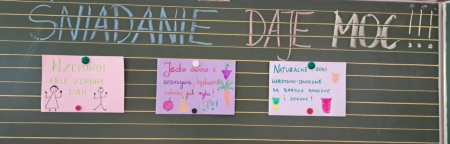 ŚNIADANIE DAJE MOC!!!
WZLECIMY
CELE ZDROWE
Jedz owoce i
warzywa, będziesz
zdrowy jak ryba!
NATURALNE SOKI
WARZYWNO-OWOCOWE
SĄ BARDZO SMACZNE
I ZDROWE!